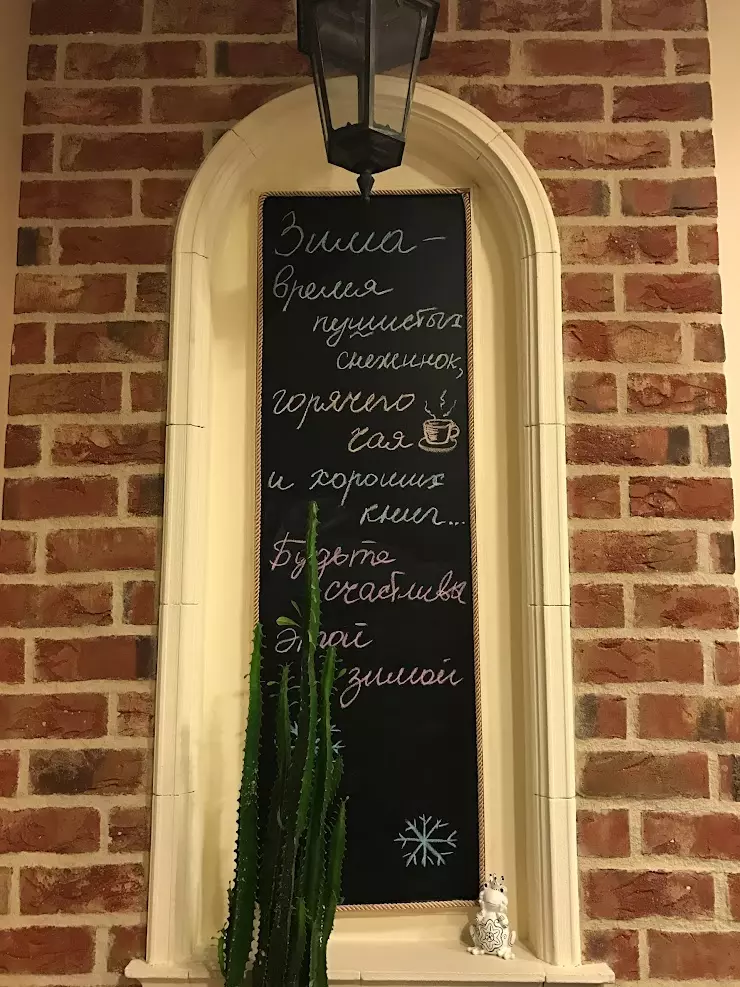 Зима -
время
пушистых
снежинок,
горячего
чая
и хороших
книг...
Будьте
счастливы
этой
зимой